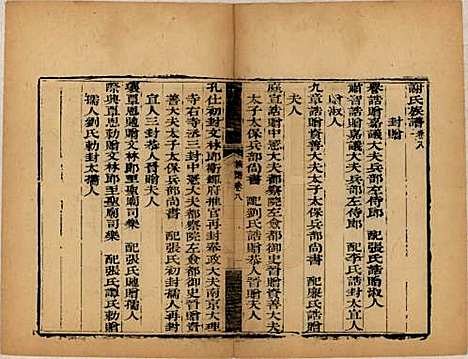 謝氏族譜卷八
封贈
榮誥贈嘉議大夫兵部左侍郎 配張氏誥贈淑人
誥贈嘉議大夫兵部左侍郎 配李氏誥封太宜人
贈淑人
九章誥贈資善大夫太子太保兵部尚書 配龐氏誥
夫人
誥贈中憲大夫都察院左僉都御史晉贈資善大夫
太子太保兵部尚書 配劉氏誥贈恭人晉贈夫人
卷八
孔仕初封文林郎衞經府推官再封奉政大夫南京大理
寺右寺丞三封中憲大夫都察院左僉都御史晉贈資
善大夫太子太保兵部尚書 配張氏初封孺人再封
宜人三封恭人晉贈夫人
襄貞恩勅贈文林郎至聖廟司樂 配張氏勅贈孺人
際興貞恩勅贈文林郎至聖廟司樂 配張氏譚氏勅贈
孺人劉氏勅封太孺人